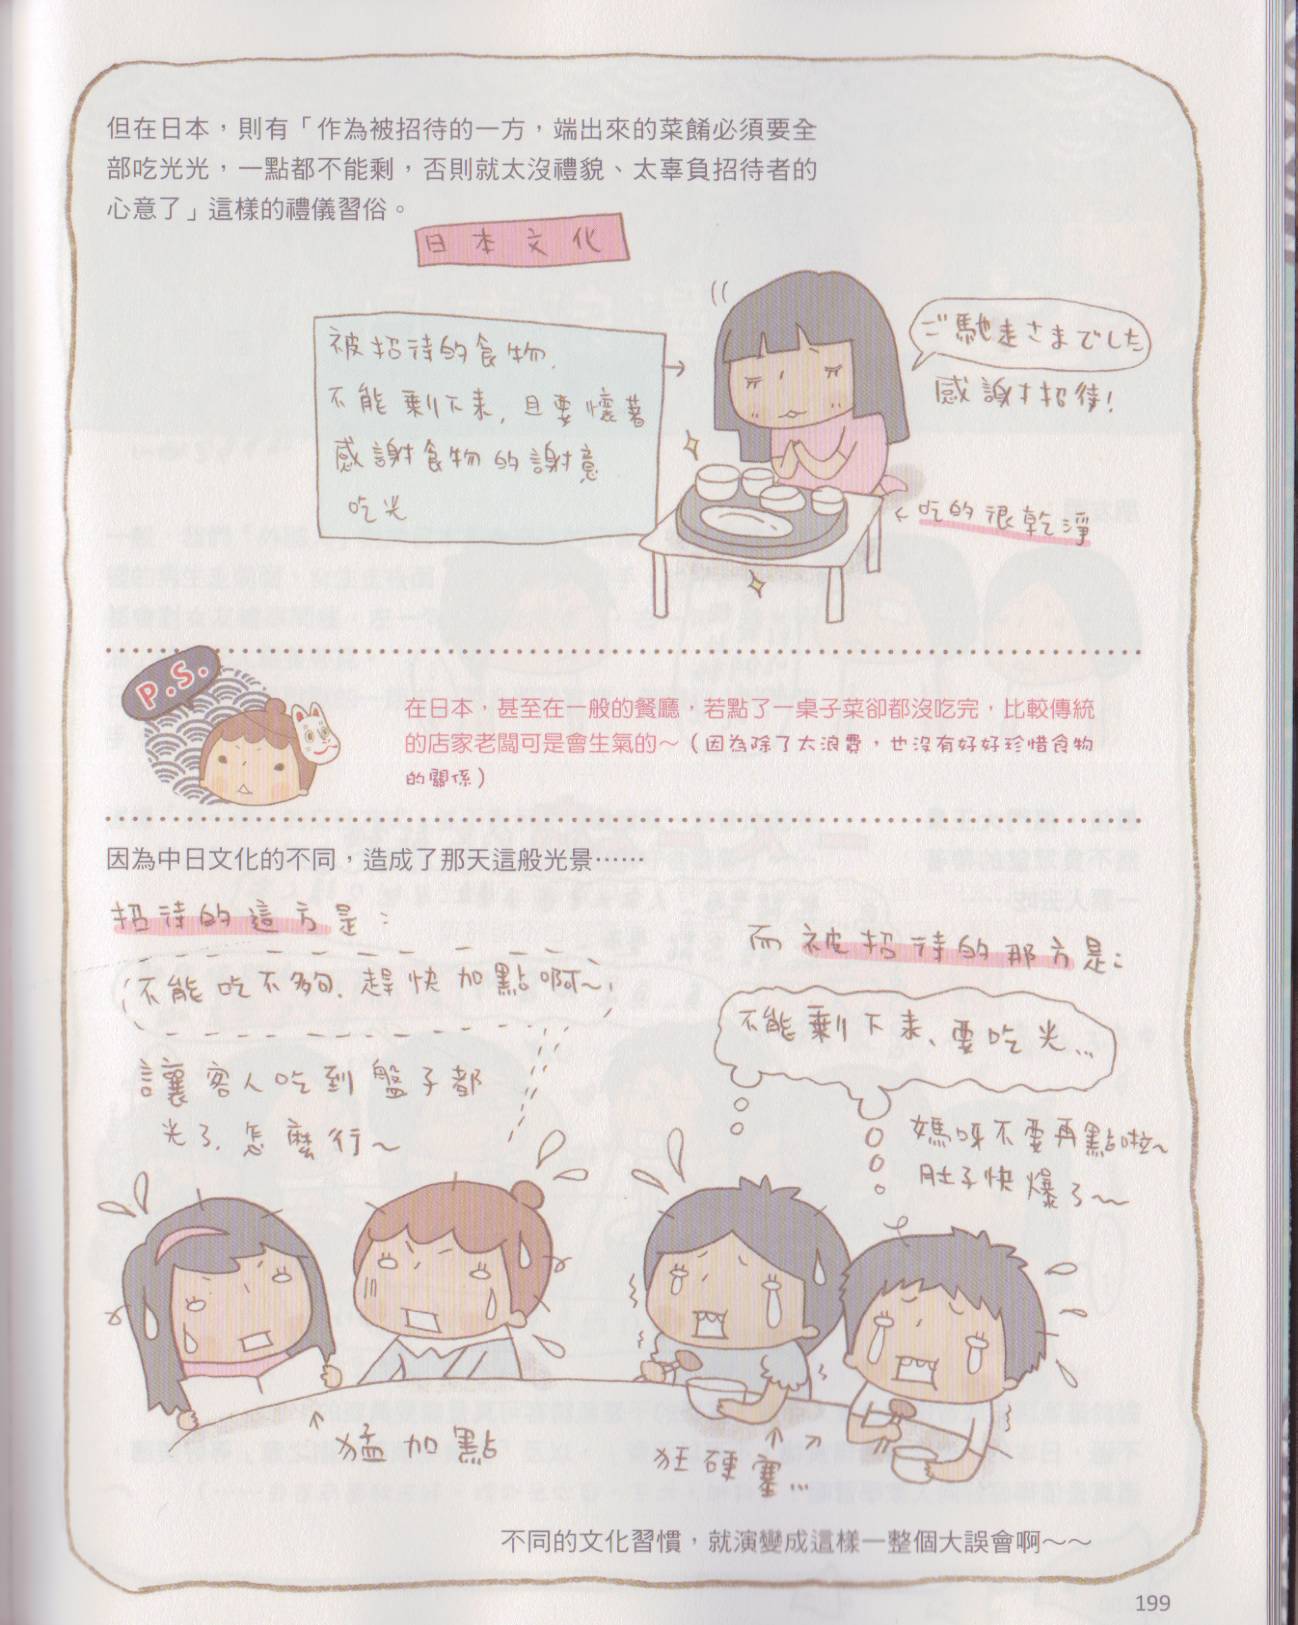 但在日本，則有「作為被招待的一方，端出來的菜餚必須要全
部吃光光，一點都不能剩，否則就太沒禮貌、太辜負招待者的
心意了」這樣的禮儀習俗。
日本文化
被招待的食物.
不能剩下來, 且要懷著
感謝食物的謝意
吃光
ご馳走さまでした
感謝招待!
吃的很乾淨
P.S.
在日本，甚至在一般的餐廳，若點了一桌子菜卻都沒吃完，比較傳統
的店家老闆可是會生氣的～（因為除了太浪費，也沒有好好珍惜食物
的關係）
因為中日文化的不同，造成了那天這般光景……
招待的這方是：
不能吃不夠. 趕快加點啊~
讓客人吃到盤子都
光了. 怎麼行~
而被招待的那方是：
不能剩下來、要吃光...
媽呀不要再點啦~
肚子快爆了~
猛加點
狂硬塞...
不同的文化習慣，就演變成這樣一整個大誤會啊～～
199